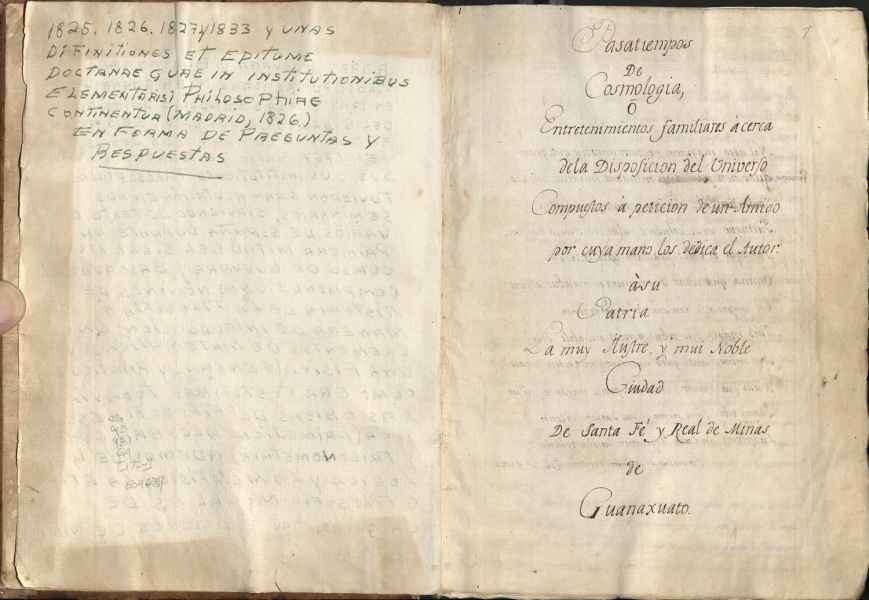 1825. 1826. 1827 y 1833 y UNAS
DIFINITIONES ET EPITUME
DOCTRNAE QUAE IN INSTITUTIONIBUS
ELEMENTARISI PHILOSOPHIAE
CONTINENTUR (MADRID, 1826)
EN FORMA DE PREGUNTAS Y
RESPUESTAS
Pasatiempos
De
Cosmologia,
Ó
Entretenimientos familiares á cerca
de la Disposicion del Universo
Compuestos à peticion de un Amigo
por cuya mano los dedica el Autor
à su
Patria
La muy Ilustre, y mui Noble
Ciudad
De Santa Fé y Real de Minas
de
Guanaxuato.